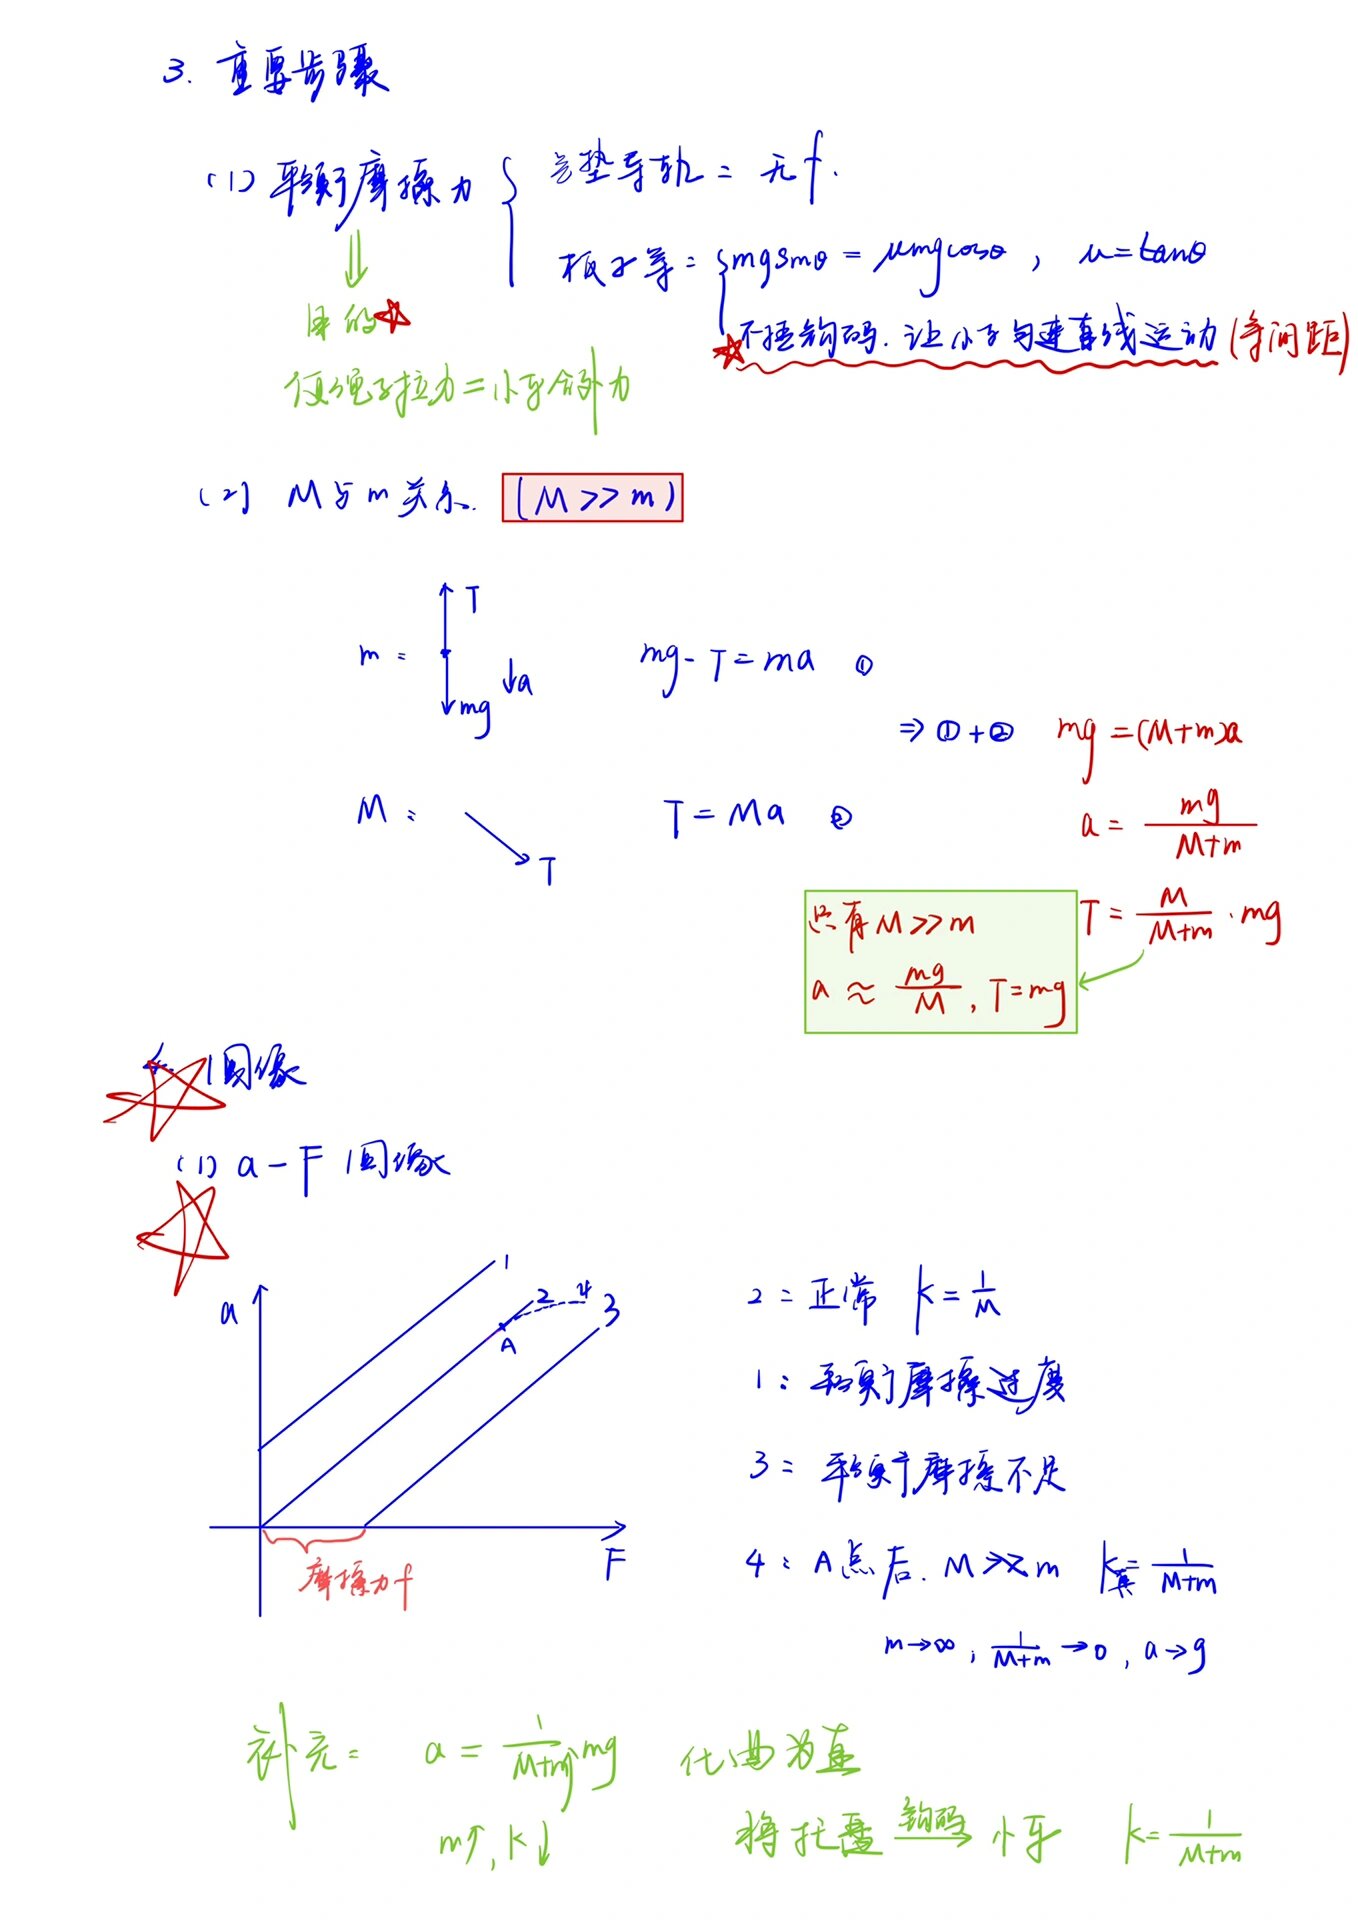 3. 重要步骤
(1) 平衡摩擦力 { 气垫导轨: 无f.
板子等: { mgsinθ = μmgcosθ , μ=tanθ
☆不挂钩码. 让小车匀速直线运动 (等间距)
⇓
目的☆
使绳子拉力=小车合外力
(2) M与m关系. (M>>m)
T
m: mg ↓a mg-T=ma ①
⇒①+② mg=(M+m)a
M: T T=Ma ②
a= mg/(M+m)
T= M/(M+m) ·mg
只有M>>m
a ≈ mg/M, T=mg
4. 图像
(1) a-F图像
a 1 2 4 3 A F
摩擦力f
2: 正常 k=1/M
1: 平衡摩擦过度
3: 平衡摩擦不足
4: A点后. M≫̸m k真=1/(M+m)
m→∞, 1/(M+m)→0, a→g
补充: a= 1/(M+m) mg 化曲为直
m↑, k↓ 将托盘 钩码→ 小车 k= 1/(M+m)